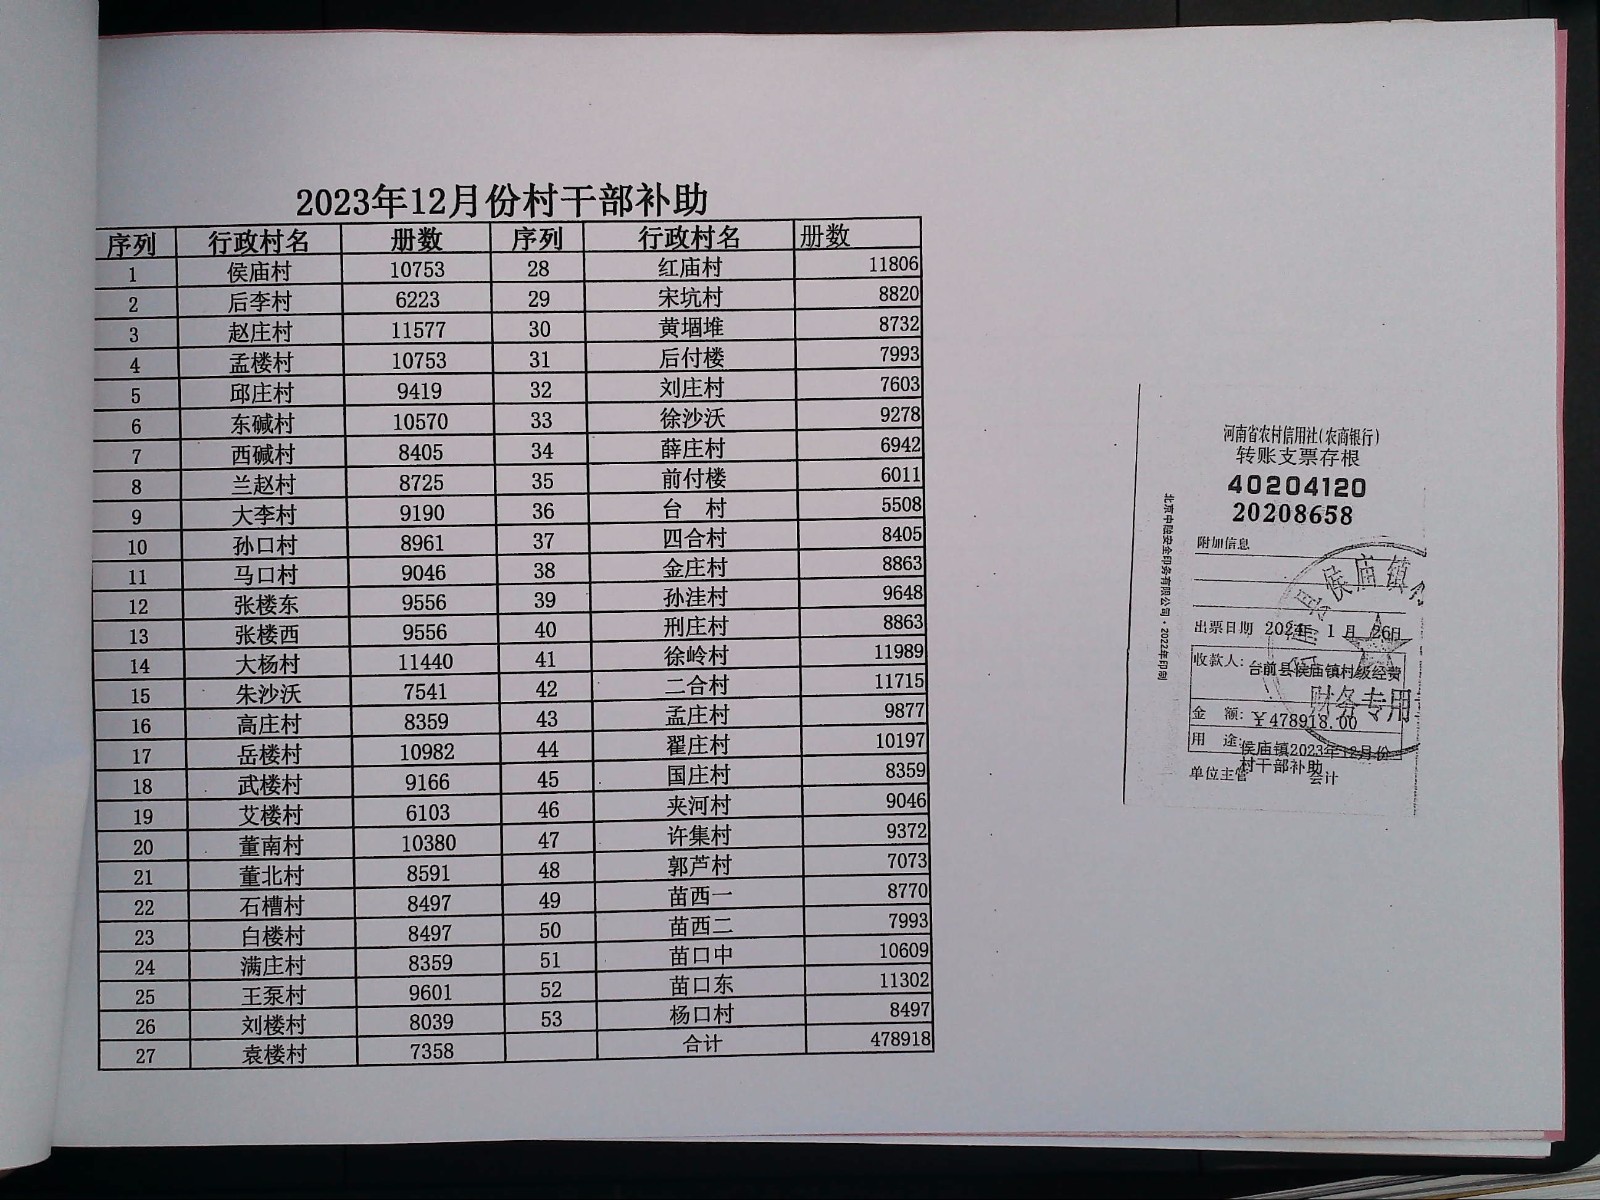 2023年12月份村干部补助
序列 行政村名 册数 序列 行政村名 册数
1 侯庙村 10753 28 红庙村 11806
2 后李村 6223 29 宋坑村 8820
3 赵庄村 11577 30 黄堌堆 8732
4 孟楼村 10753 31 后付楼 7993
5 邱庄村 9419 32 刘庄村 7603
6 东碱村 10570 33 徐沙沃 9278
7 西碱村 8405 34 薛庄村 6942
8 兰赵村 8725 35 前付楼 6011
9 大李村 9190 36 台 村 5508
10 孙口村 8961 37 四合村 8405
11 马口村 9046 38 金庄村 8863
12 张楼东 9556 39 孙洼村 9648
13 张楼西 9556 40 刑庄村 8863
14 大杨村 11440 41 徐岭村 11989
15 朱沙沃 7541 42 二合村 11715
16 高庄村 8359 43 孟庄村 9877
17 岳楼村 10982 44 翟庄村 10197
18 武楼村 9166 45 国庄村 8359
19 艾楼村 6103 46 夹河村 9046
20 董南村 10380 47 许集村 9372
21 董北村 8591 48 郭芦村 7073
22 石槽村 8497 49 苗西一 8770
23 白楼村 8497 50 苗西二 7993
24 满庄村 8359 51 苗口中 10609
25 王泵村 9601 52 苗口东 11302
26 刘楼村 8039 53 杨口村 8497
27 袁楼村 7358 合计 478918
河南省农村信用社(农商银行)
转账支票存根
40204120
20208658
附加信息
侯庙镇
出票日期 2024年 1月 26日
收款人: 台前县侯庙镇村级经费
财务专用
金 额: ￥478918.00
用 途: 侯庙镇2023年12月份
村干部补助
单位主管 会计
北京中融安全印务有限公司·2022年印制